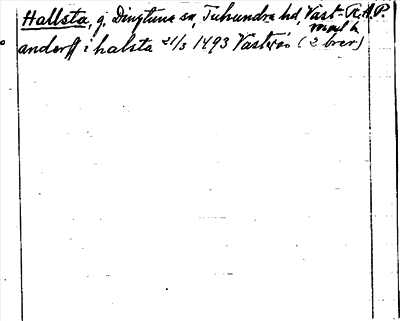 Hallsta, g. Dingtuna sn, Tuhundra hd, Väst- R.A.P.
manl h
anderss i halsta 21/3 1493 Västerås (2 brev)